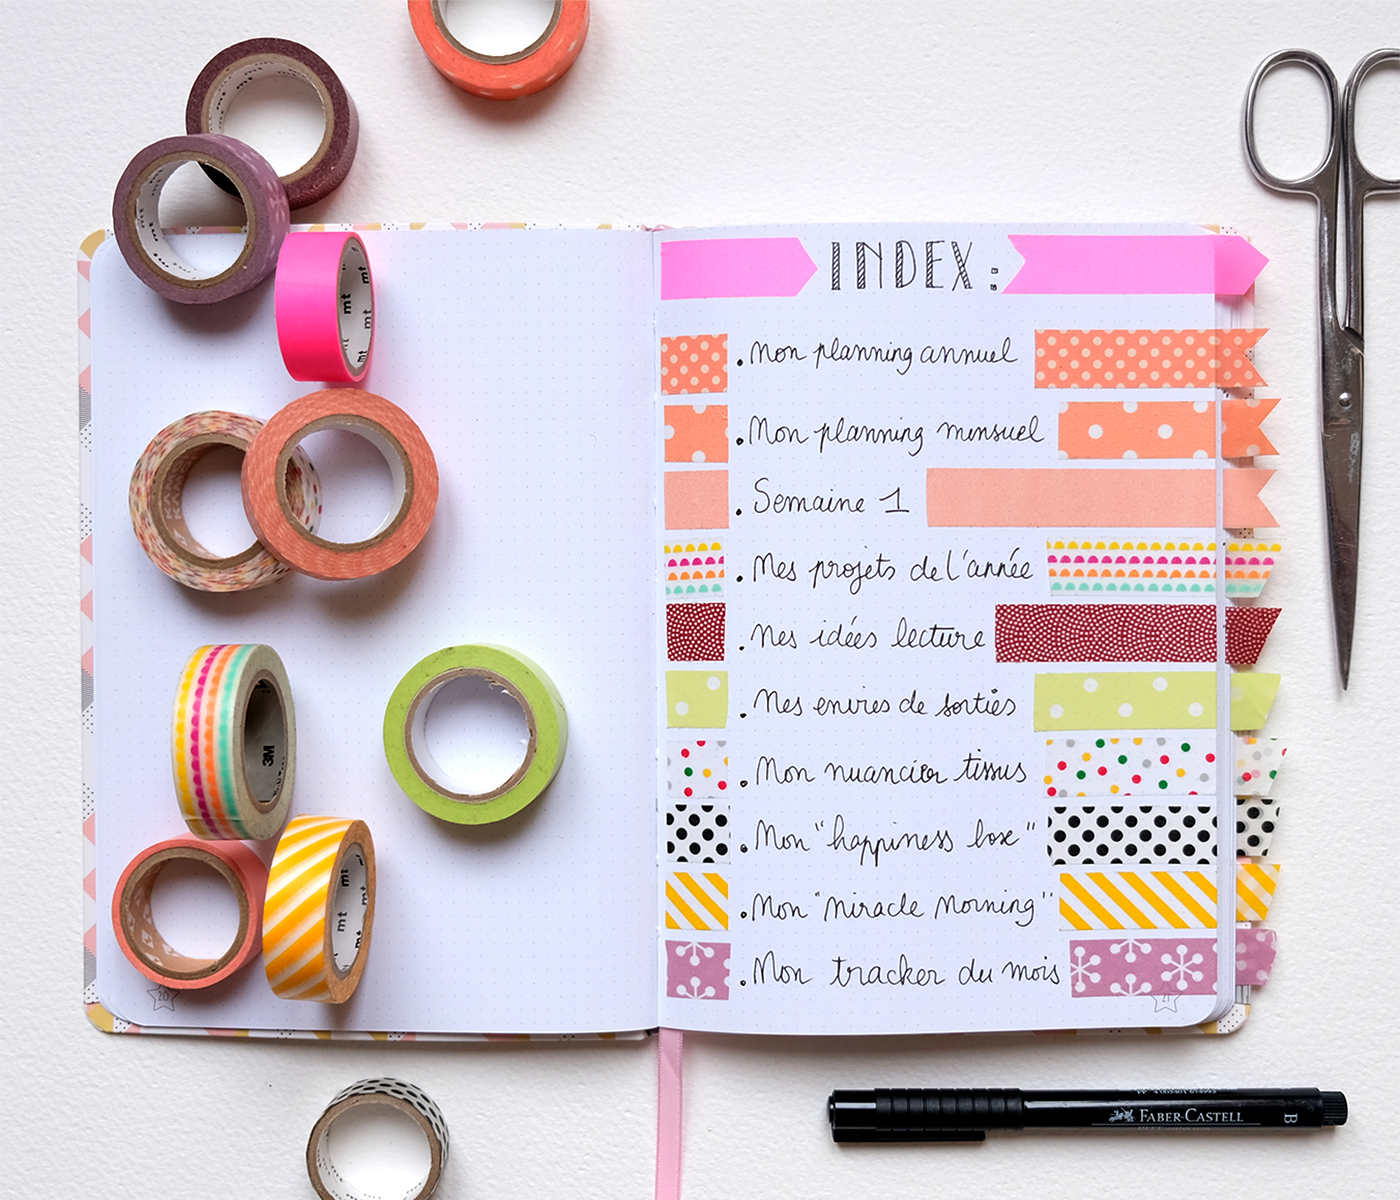 mt
mt
mt
mt
INDEX:
. Mon planning annuel
. Mon planning mensuel
. Semaine 1
. Mes projets de l'année
. Mes idées lecture
. Mes envies de sorties
. Mon nuancier tissus
. Mon "happiness box"
. Mon "miracle morning"
. Mon tracker du mois
3M
mt
mt
20
21
FABER-CASTELL B